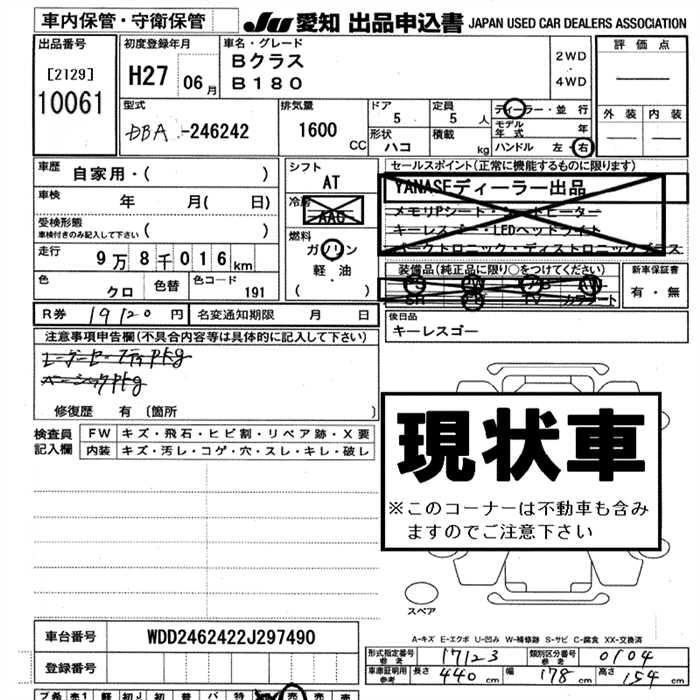 車内保管・守衛保管
JU 愛知 出品申込書 JAPAN USED CAR DEALERS ASSOCIATION
出品番号
[2129]
10061
初度登録年月
H27 06月
車名・グレード
Bクラス
B180
2WD
・
4WD
評価点
外装 内装
型式
DBA -246242
排気量
1600 CC
ドア
5
定員
5 人
形状
ハコ
積載
kg
ディーラー・並行
モデル年式 年
ハンドル 左・右
車歴
自家用・( )
車検
年 月( 日)
受検形態
車検付きのみ記入して下さい ( )
走行
9万8千016km
色
クロ
色替
色コード
191
シフト
AT
冷房
AAC
燃料
ガソリン
軽・油
( )
セールスポイント(正常に機能するものに限ります)
YANASEディーラー出品
メモリPシート・シートヒーター
キーレスゴー・LEDヘッドライト
パークトロニック・ディストロニックプラス
装備品(純正品に限り○をつけてください)
SR TV カワシート
新車保証書
有・無
R券 19120 円
名変通知期限 月 日
後日品
キーレスゴー
注意事項申告欄(不具合内容等は具体的に記入して下さい)
レーダーセーフティPkg
ベーシックPkg
修復歴 有 〔箇所 〕
検査員記入欄
FW キズ・飛石・ヒビ割・リペア跡・X要
内装 キズ・汚レ・コゲ・穴・スレ・キレ・破レ
現状車
※このコーナーは不動車も含み
ますのでご注意下さい
スペア
A-キズ E-エクボ U-凹み W-補修跡 S-サビ C-腐食 XX-交換済
車台番号 WDD2462422J297490
登録番号
形式指定番号 参考 17123
類別区分番号 参考 0104
車庫証明用 参考 長さ 440 cm 幅 178 cm 高さ 154 cm